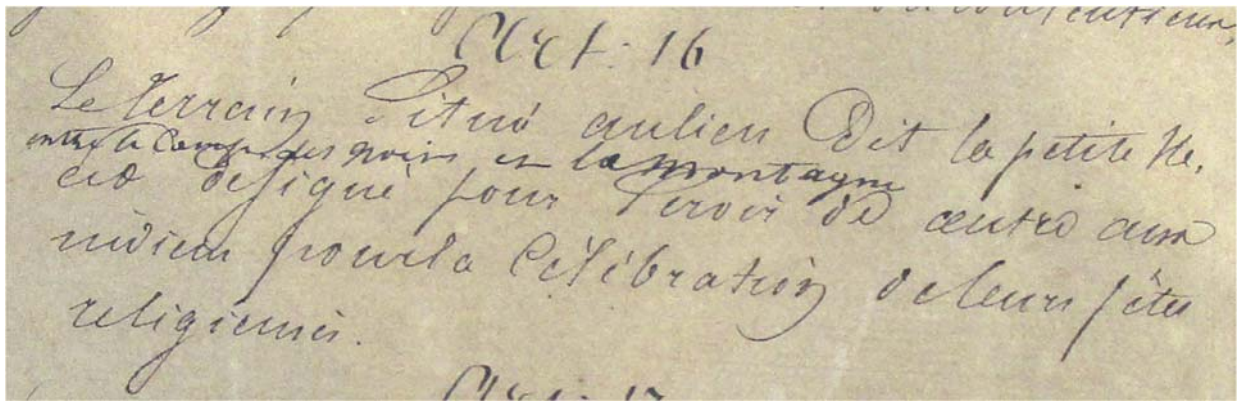 contentieux,
Art: 16
Le terrain Situé au lieu Dit la petite Ile,
entre le Camp des noirs et la montagne
est désigué pour Servir de centre aux
indiens pour la Célébration de leurs fêtes
religieuses.
Art: 17